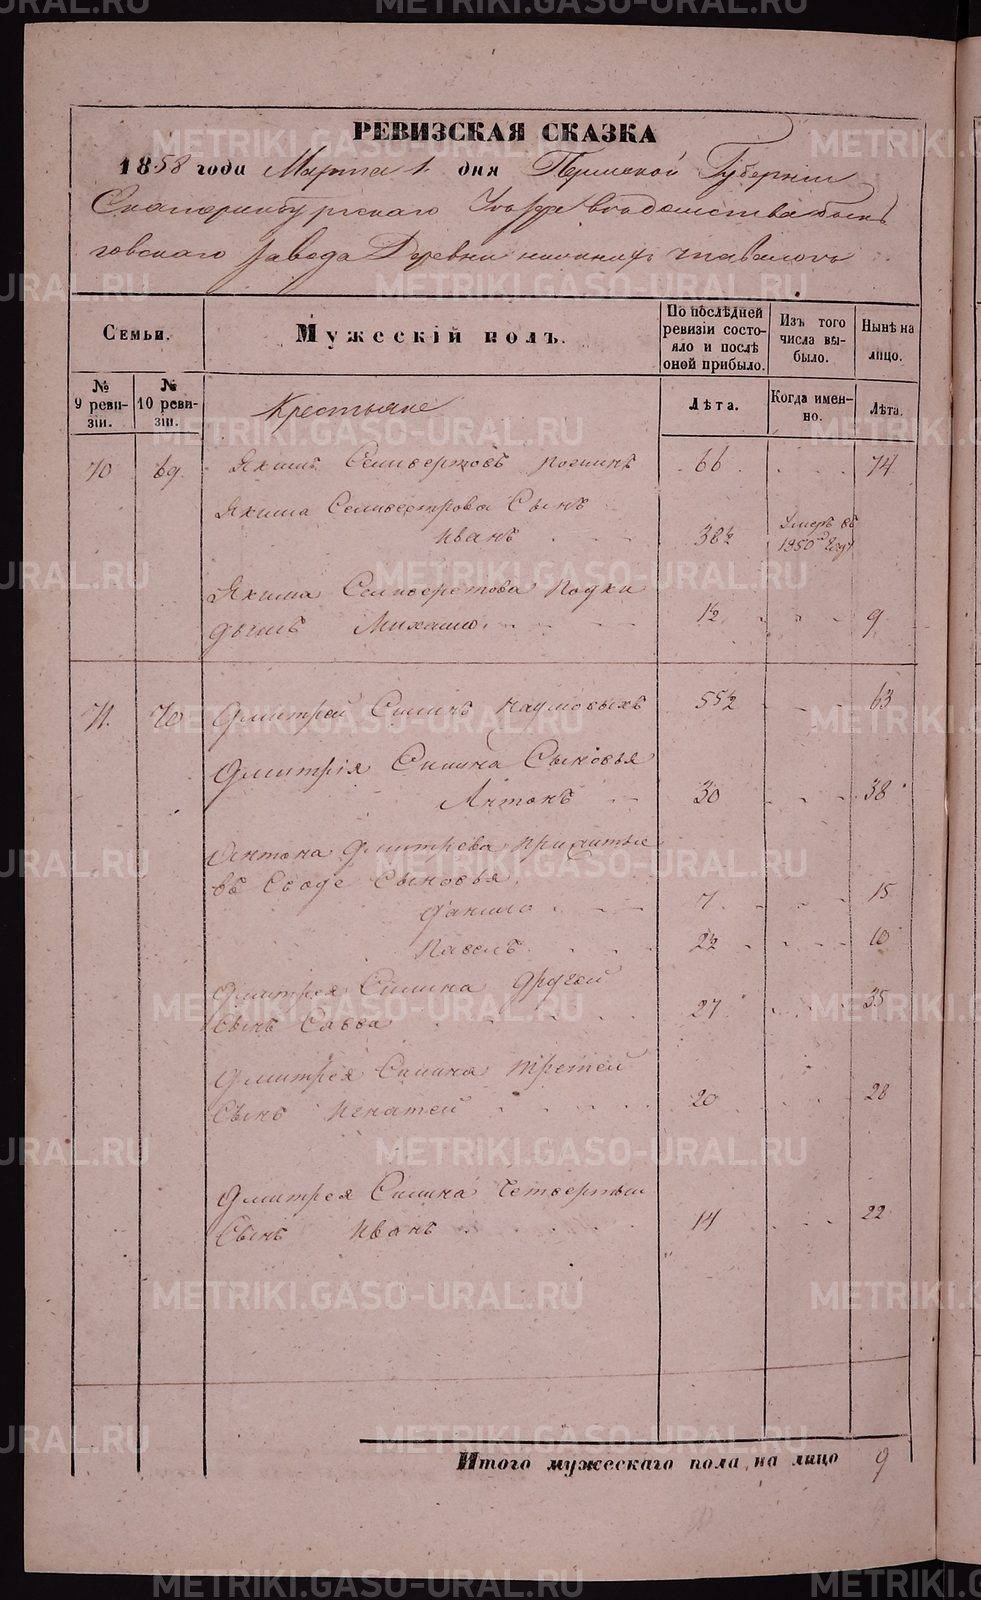 РЕВИЗСКАЯ СКАЗКА
1858 года Марта 1. дня Пермской Губернiи
Екатеринбургскаго Уезда ведомства бынь
говскаго завода Деревни нижнихъ тавологъ
Семьи.
Мужескій полъ.
По послѣдней ревизіи состо-
яло и послѣ
оной прибыло.
Изъ того
числа вы-
было.
Нынѣ на
лицо.
№
9 реви-
зіи.
№
10 реви-
зіи.
Крестьяне
Лѣта.
Когда имен-
но.
Лѣта.
70 69 Якимъ Селивестровъ 66 74
Якима Селивестрова Сынъ
Иванъ 38½ Умеръ въ 1850 году
Якима Селиверстова Подки
дышъ Михаило 1½ 9
71. 70 Дмитрей Силинъ Наумовыхъ 55½ 63
Дмитрія Силина Сыновья
Антонъ 30 38
Антона Дмитрева прижитые
въ Сводѣ Сыновья
Данило 7 15
Павелъ 2½ 10
Дмитрея Силина другой
Сынъ Савва 27 35
Дмитрея Силина третей
Сынъ Игнатей 20 28
Дмитрея Силина Четвертый
Сынъ Иванъ 14 22
Итого мужескаго пола на лицо 9
METRIKI.GASO-URAL.RU